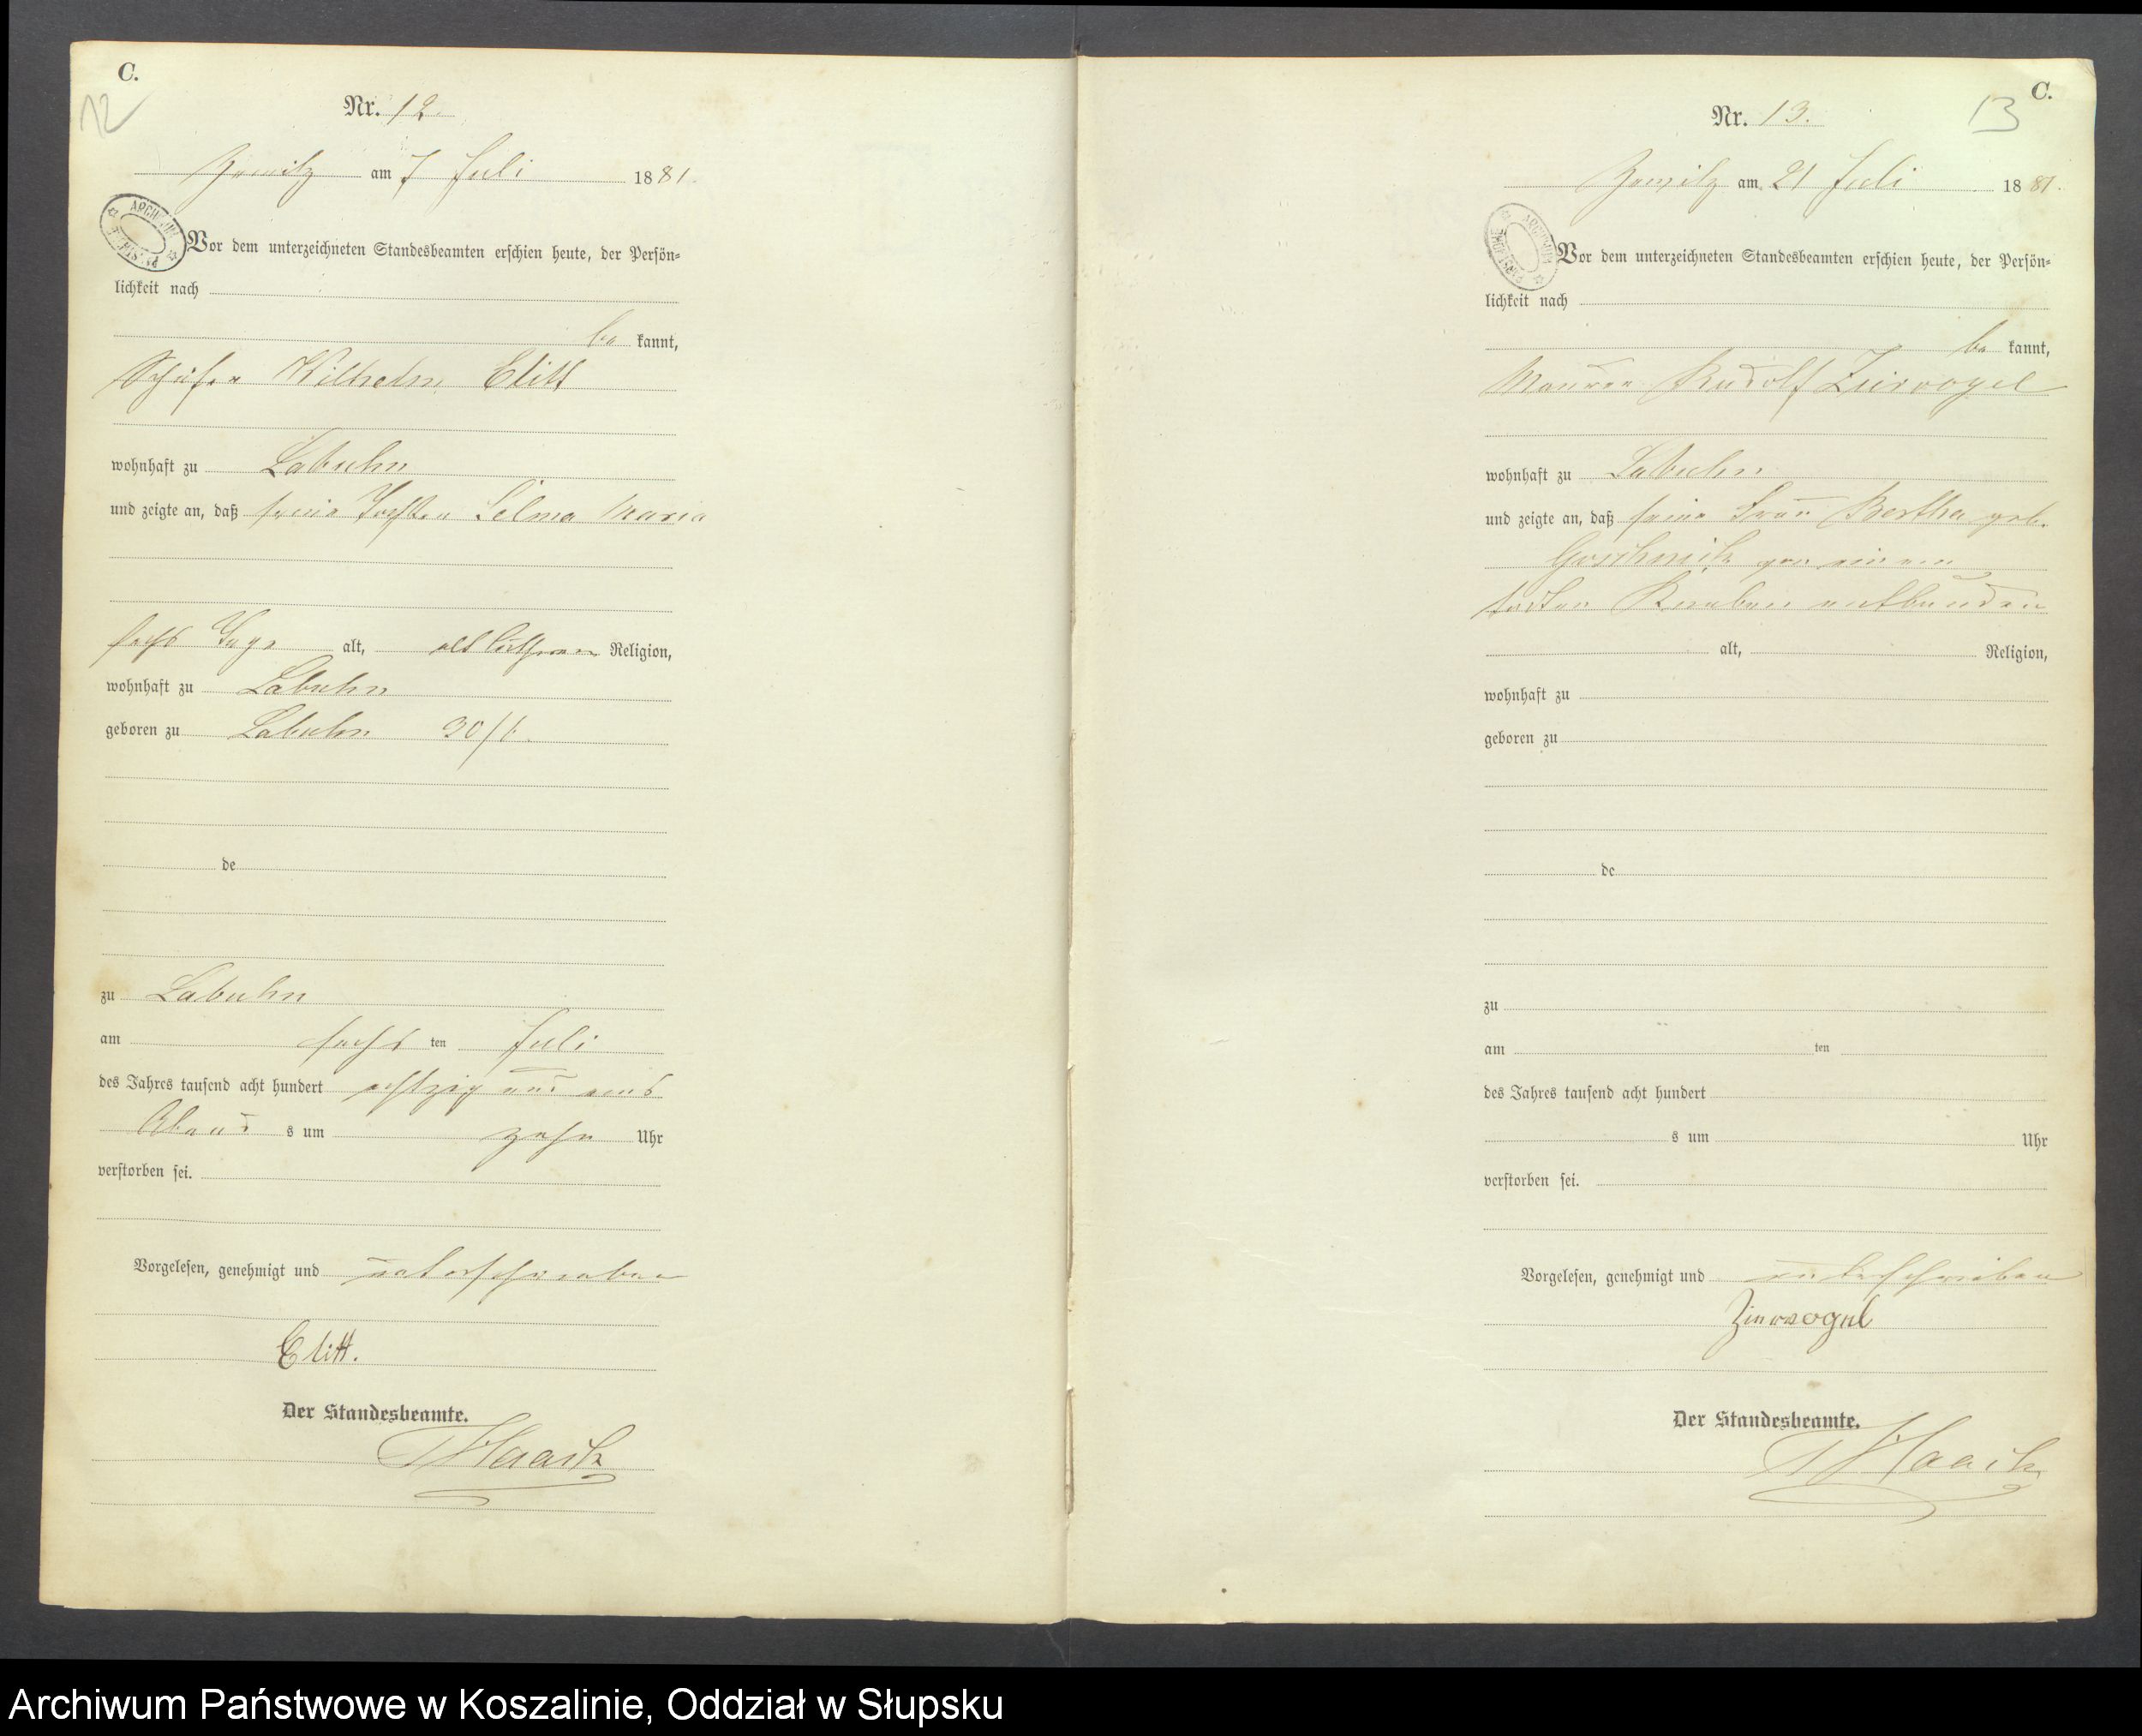 C.
12
Nr. 12.
Zewitz am 7 Juli 1881.
ARCHIWUM PAŃSTWOWE
Vor dem unterzeichneten Standesbeamten erschien heute, der Persön=
lichkeit nach
be kannt,
Schäfer Wilhelm Clitt
wohnhaft zu Labuhn
und zeigte an, daß seine Tochter Selma Maria
sechs Tage alt, alt lutheran Religion,
wohnhaft zu Labuhn
geboren zu Labuhn 30/6.
de
zu Labuhn
am sechs ten Juli
des Jahres tausend acht hundert achtzig und eins
Abend s um zehn Uhr
verstorben sei.
Vorgelesen, genehmigt und unterschrieben
Clitt.
Der Standesbeamte.
Haack
C.
13
Nr. 13.
Zewitz am 21 Juli 1881.
ARCHIWUM PAŃSTWOWE
Vor dem unterzeichneten Standesbeamten erschien heute, der Persön=
lichkeit nach
be kannt,
Maurer Rudolf Ziervogel
wohnhaft zu Labuhn
und zeigte an, daß seine Frau Bertha geb.
von einem
todten Knaben entbunden
alt, Religion,
wohnhaft zu
geboren zu
de
zu
am ten
des Jahres tausend acht hundert
s um Uhr
verstorben sei.
Vorgelesen, genehmigt und unterschrieben
Ziervogel
Der Standesbeamte.
Haack
Archiwum Państwowe w Koszalinie, Oddział w Słupsku